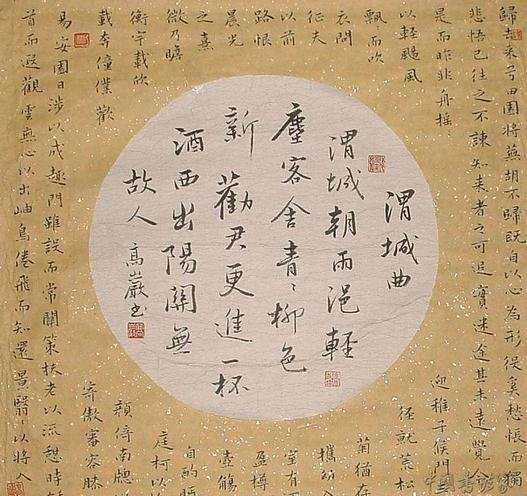 歸去來兮田園將蕪胡不歸既自以心為形役奚惆悵而獨
悲悟已往之不諫知來者之可追實迷途其未遠覺今
是而昨非舟搖
以輕颺風
飄而吹
衣問
征夫
以前
路恨
晨光
之熹
欲乃瞻
衡宇載欣
載奔僮僕歡
迎稚子候門
徑就荒松
菊猶存
攜幼入
室有酒
盈樽
壺觴
自酌
庭柯以
顏倚南牕
寄傲審容膝
易安園日涉以成趣門雖設而常關策扶老以流憩時
首而遐觀雲無心以出岫鳥倦飛而知還景翳〻以將入
渭城曲
渭城朝雨浥輕
塵客舍青〻柳色
新勸君更進一杯
酒西出陽關無
故人 高巖書